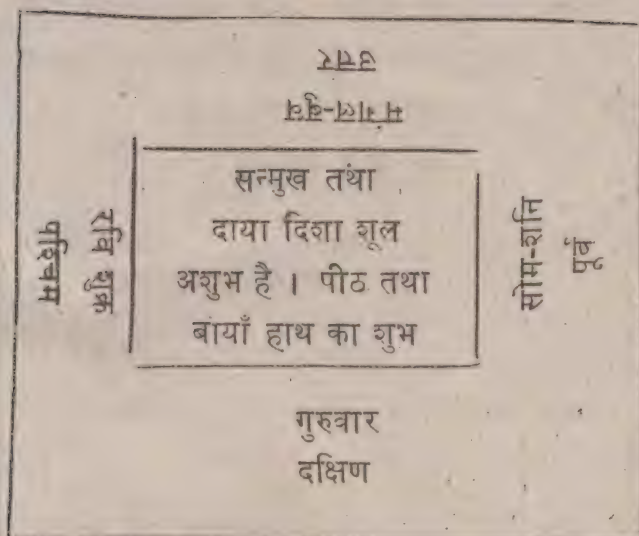 उत्तर
मंगल-बुध
पश्चिम
रवि शुक्र
सन्मुख तथा
दाया दिशा शूल
अशुभ है । पीठ तथा
बायाँ हाथ का शुभ
सोम-शनि
पूर्व
गुरुवार
दक्षिण